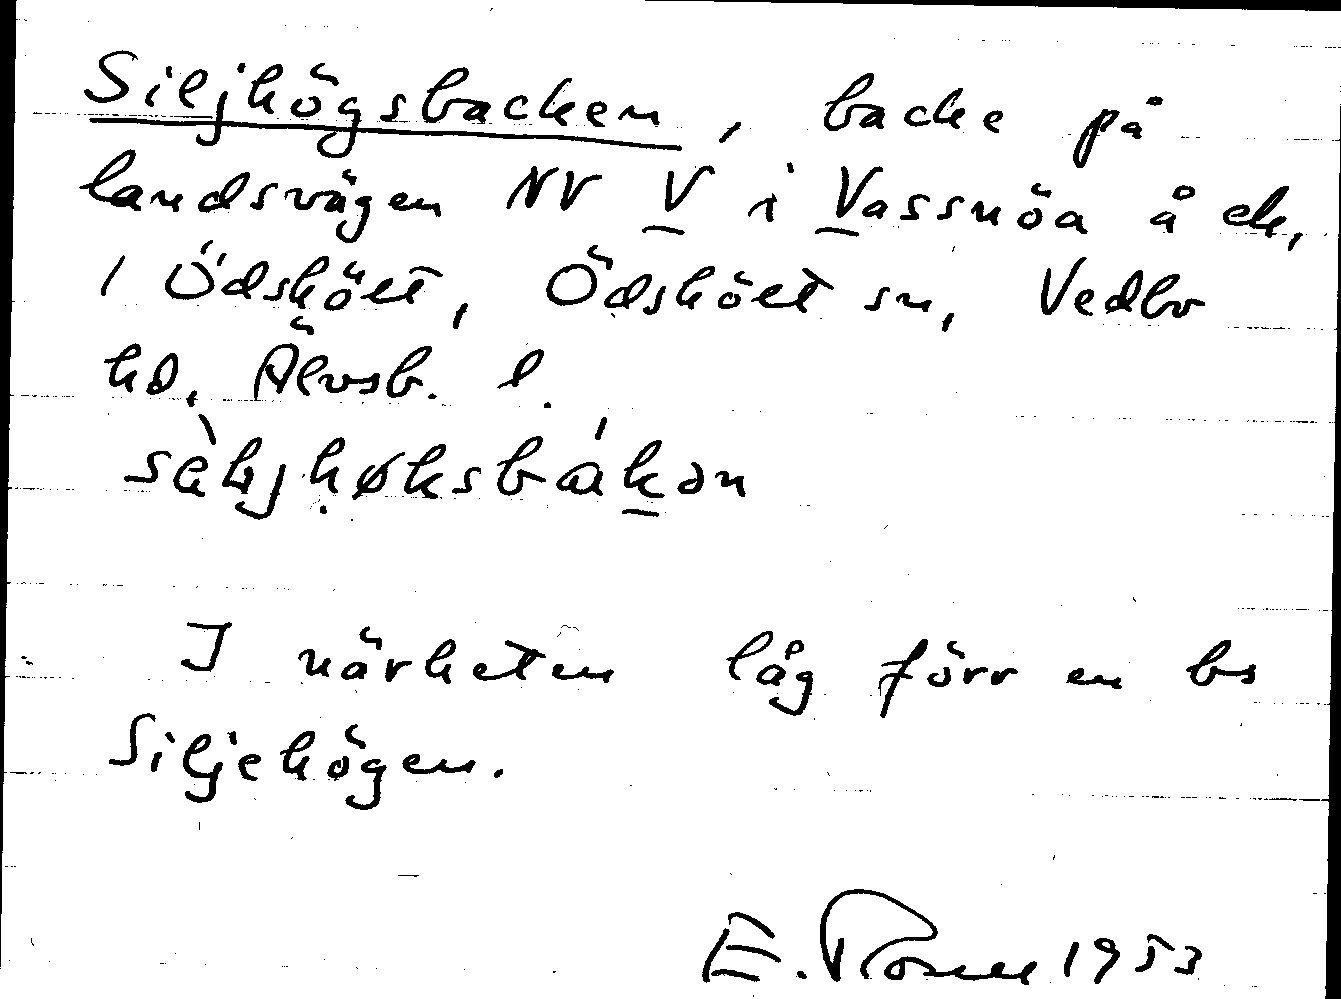 Siljhögsbacken, backe på
landsvägen NV V i Vassnöa å ek,
1 Ödskölt, Ödskölt sn, Vedbo
hd, Älvsb. l.
I närheten låg förr en bs
Siljehögen.
E. 1953